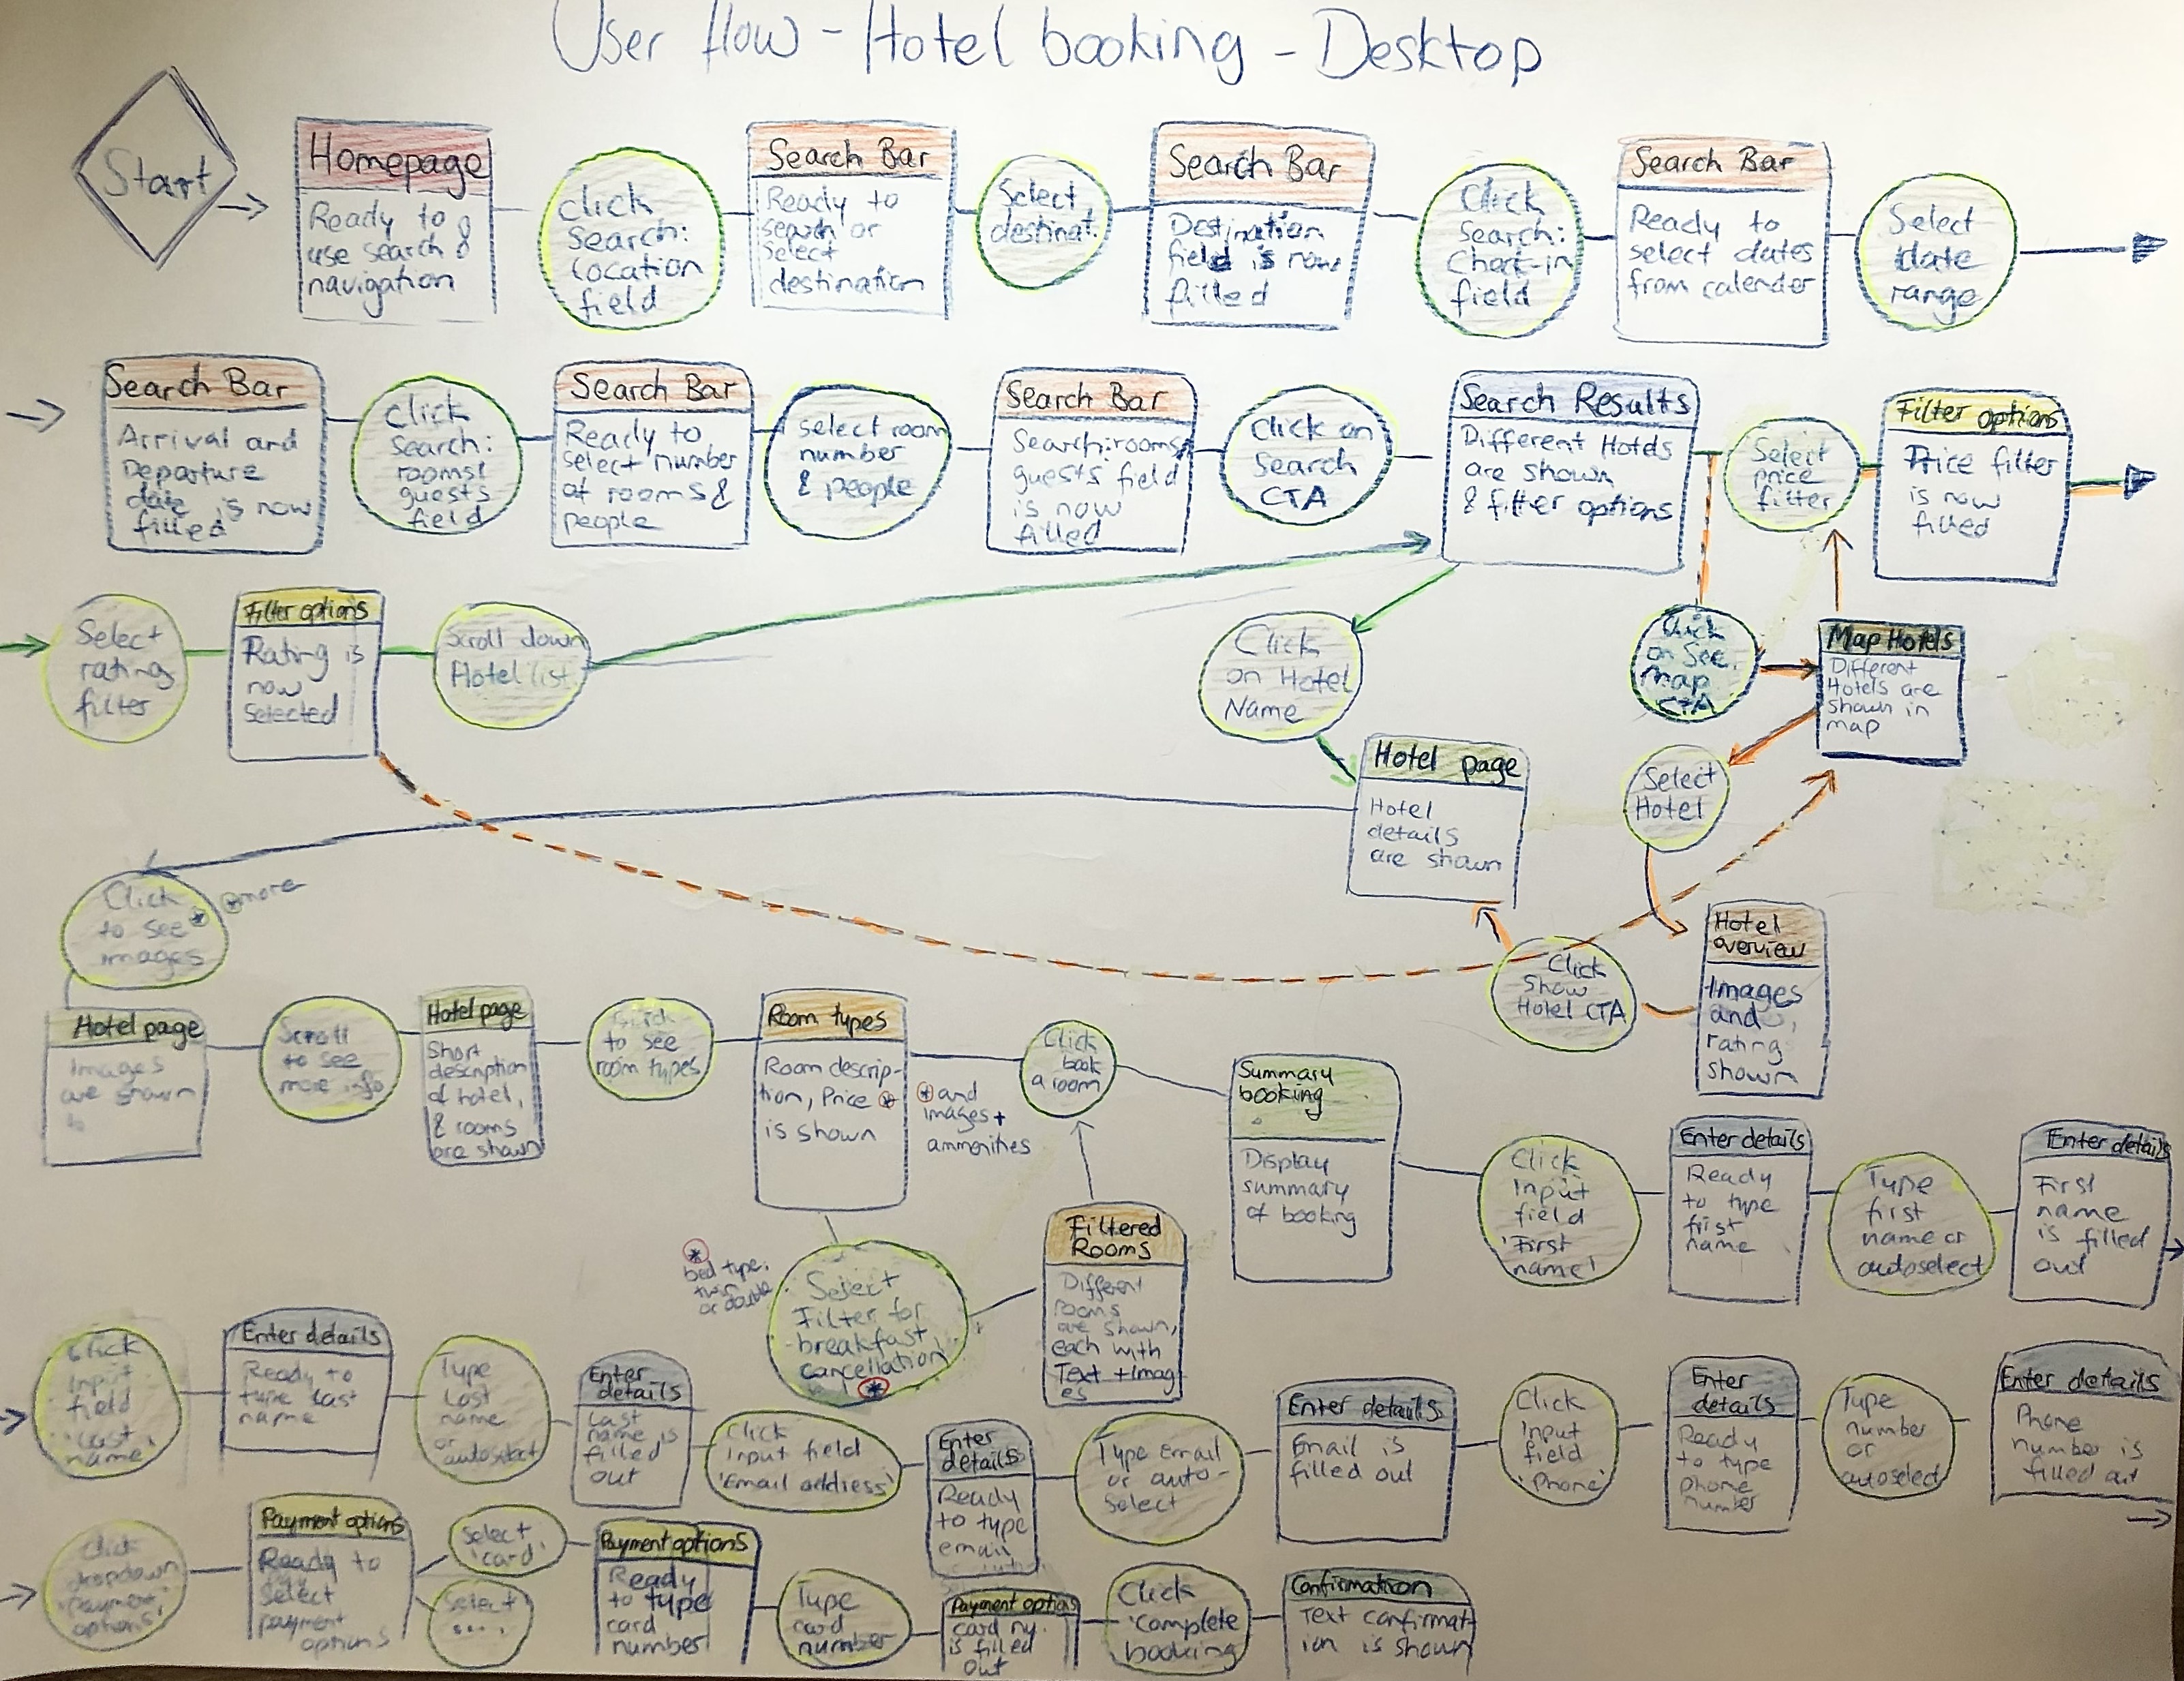 User flow - Hotel booking - Desktop
Start
Homepage
Ready to
use search &
navigation
Click
Search:
Location
field
Search Bar
Ready to
search or
select
destination
Select
destinat.
Search Bar
Destination
field is now
filled
Click
Search:
Check-in
field
Search Bar
Ready to
select dates
from calender
Select
date
range
Search Bar
Arrival and
Departure
date is now
filled
Click
Search:
rooms&
guests
field
Search Bar
Ready to
select number
of rooms &
people
select room
number
& people
Search Bar
Search:rooms
guests field
is now
filled
Click on
Search
CTA
Search Results
Different Hotels
are shown
& filter options
Select
price
filter
Filter options
Price filter
is now
filled
Select
rating
filter
Filter options
Rating is
now
selected
Scroll down
Hotel list
Click
on Hotel
Name
Click
on See
Map
CTA
Map Hotels
Different
Hotels are
shown in
map
Hotel page
Hotel
details
are shown
Select
Hotel
Click
to see *
images
* more
Hotel
overview
Images
and
rating
shown
Click
Show
Hotel CTA
Hotel page
Images
are shown
Scroll
to see
more info
Hotel page
Short
description
of hotel,
& rooms
are shown
Click
to see
room types
Room types
Room descrip-
tion, Price *
is shown
* and
images +
ammenities
Click
book
a room
Summary
booking
Display
summary
of booking
Click
Input
field
'First
name'
Enter details
Ready
to type
first
name
Type
first
name or
autoselect
Enter details
First
name
is filled
out
*
bed type:
twin
or double
Select
Filter for
breakfast,
cancellation
*
Filtered
Rooms
Different
rooms
are shown,
each with
Text + Imag
es
Click
Input
field
'Last
name'
Enter details
Ready to
type last
name
Type
Last
name
or
autoselect
Enter
details
Last
name is
filled
out
Click
Input field
'Email address'
Enter
details
Ready
to type
email
Type Email
or auto-
select
Enter details
Email is
filled out
Click
Input
field
'Phone'
Enter
details
Ready
to type
phone
number
Type
number
or
autoselect
Enter details
Phone
number is
filled out
Click
dropdown
'Payment
options'
Payment options
Ready to
Select
payment
options
Select
'card'
Select
....
Payment options
Ready
to type
card
number
Type
card
number
Payment options
card nr.
is filled
out
Click
'Complete
booking'
Confirmation
Text confirmat
ion is shown